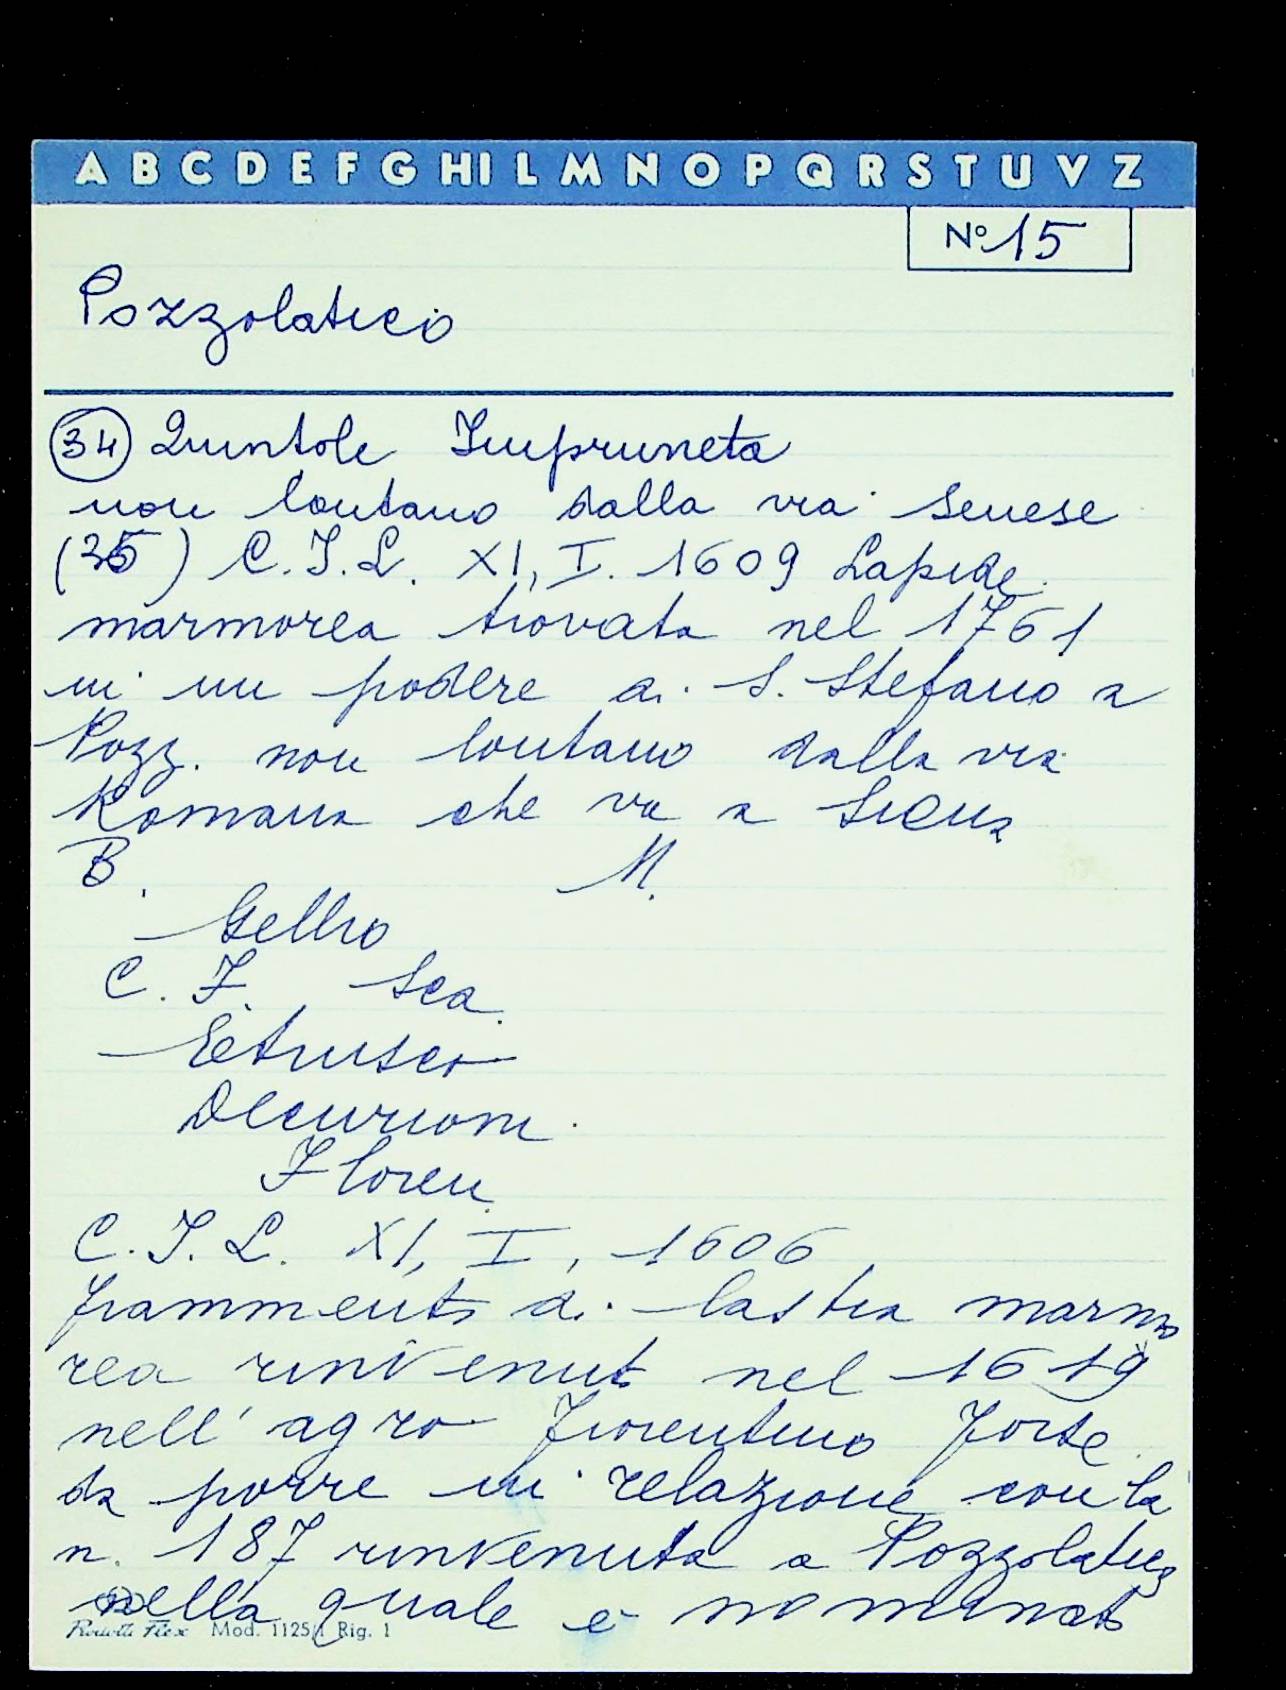 A B C D E F G H I L M N O P Q R S T U V Z
N° 15
Pozzolatico
34 Quintole Impruneta
non lontano dalla via Senese
(35) C.I.L. XI, I. 1609 Lapide
marmorea trovata nel 1761
in un podere di S. Stefano a
Pozz. non lontano dalla via
Romana che va a Siena
B. M.
Gellio
C. F. Sca.
Etrusco
Decurioni
Floren.
C.I.L. XI, I, 1606
frammento di lastra marmo
rea rinvenuto nel 1619
nell'agro fiorentino forse
da porre in relazione con la
n. 187 rinvenuta a Pozzolatico
nella quale è nominato
Mod. 1125/1 Rig. 1